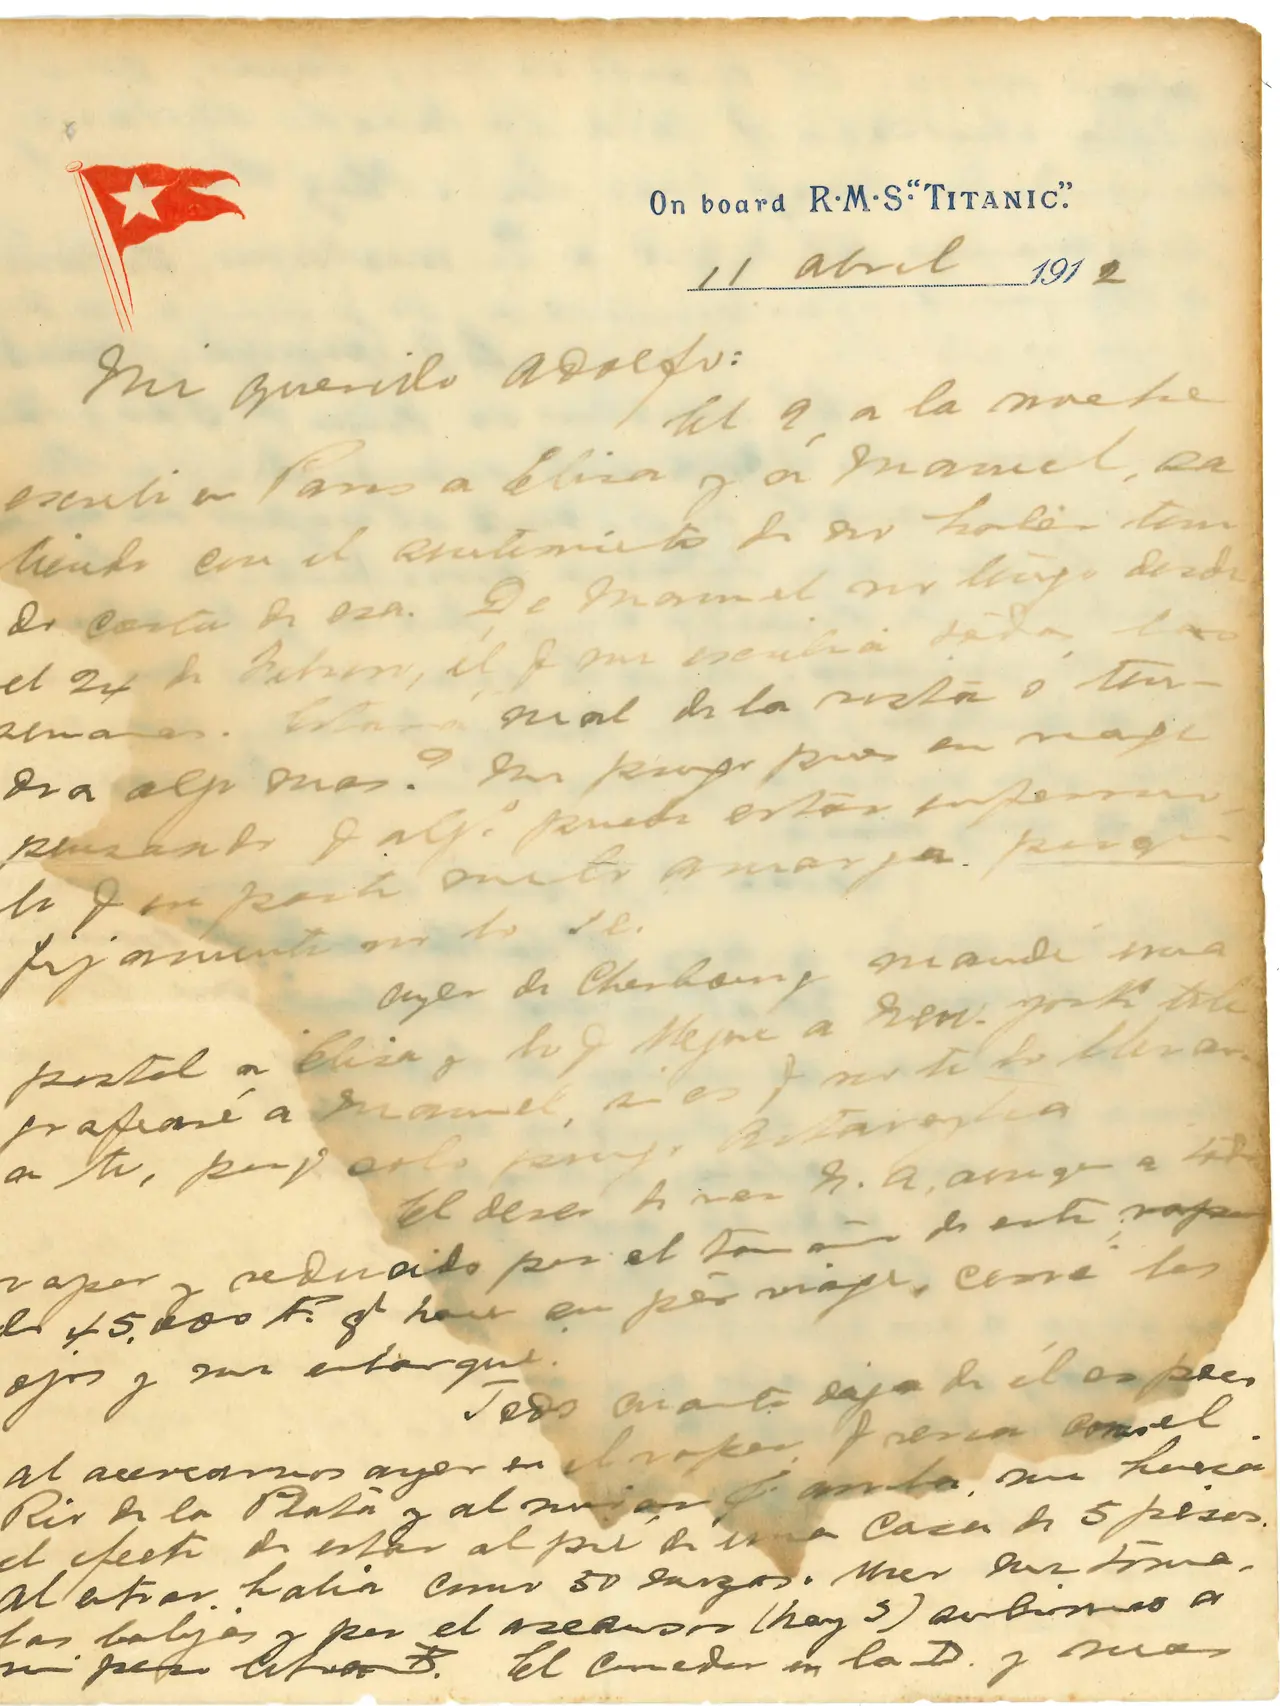 On board R·M·S. "TITANIC".
11 abril 1912
Mi querido Adolfo:
El 9, a la noche
escribí en Paris a Elisa y á Manuel, sa
liendo con el sentimiento de no haber teni
do carta de esa. De Manuel no tengo desde
el 24 de Febrero, él q me escribia todas las
semanas. Estará mal de la vista ó ten-
dra algo mas? Me pongo pues en viage
pensando q alg.º puede estar enfermo
lo q en parte me lo amarga. porque
fijamente no lo se.
ayer de Cherbourg mandé una
postal a Elisa y hoy q llegue a New-York tele
grafearé a Manuel, si es q no te lo
a ti, porq solo pongo
El deseo de ver N. A, a todo
vapor y seducido por el tamaño de este vapor
de 45.000 T. q hace su pér viage, cerré los
ojos y me embarqué.
Todo cuanto diga de él es poco
al acercarnos ayer en el vapor q venia con el
Rio de la Plata y al mirar p. arriba, me hacia
el efecto de estar al pié de una casa de 5 pisos.
Al entrar, habia como 50 mozos. Uno me toma
las balijas y por el ascensor (hay 3) subimos a
mi piso letra B. El comedor en la D. y mas